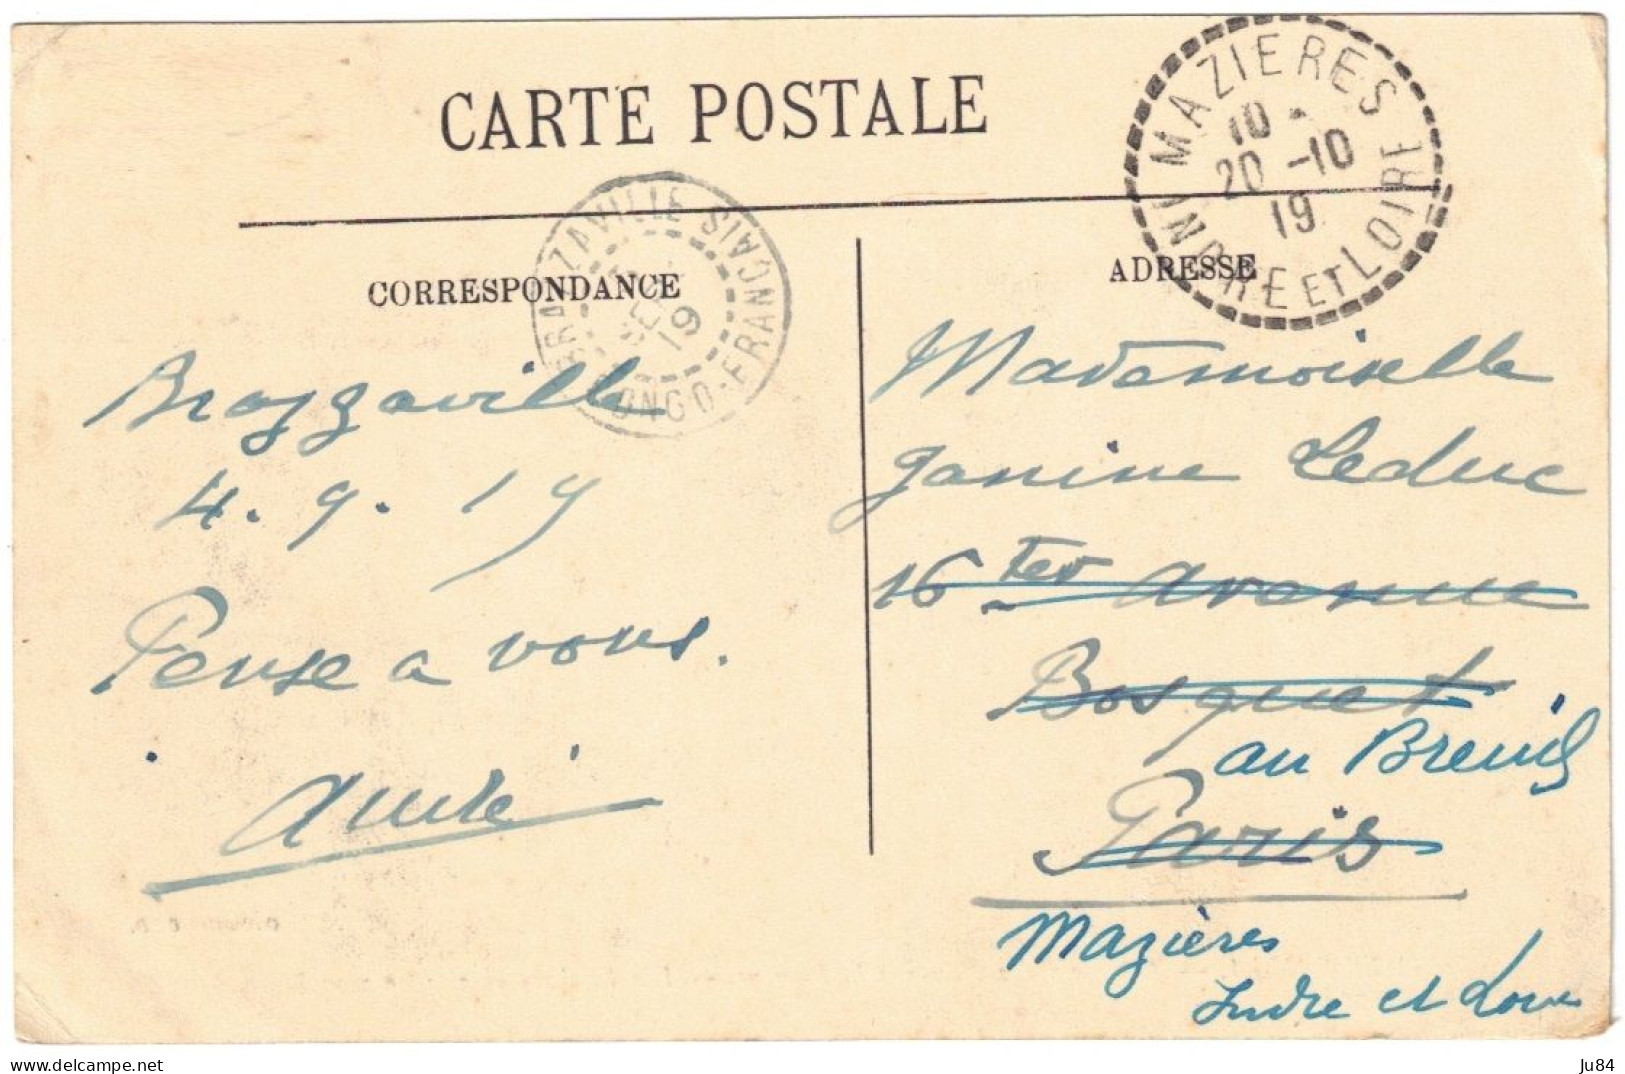 CARTE POSTALE
MAZIERES
10
20 -10
19
INDRE ET LOIRE
BRAZZAVILLE
SEPT
19
CONGO-FRANÇAIS
CORRESPONDANCE
ADRESSE
Brazzaville
4. 9. 19
Pense a vous.
Mademoiselle
Janine Leduc
16 ter avenue
Bosquet
au Breuil
Paris
Mazières
Indre et Loire
Ju84